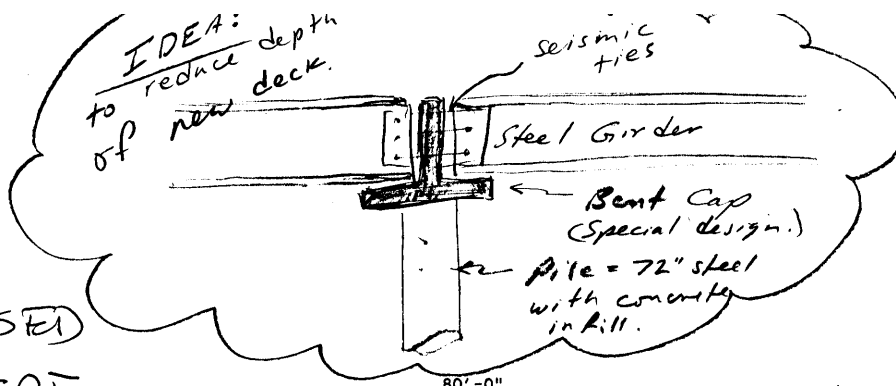 IDEA:
to reduce depth
of new deck.
seismic
ties
Steel Girder
Bent Cap
(Special design.)
Pile = 72" steel
with concrete
infill.
SED
80'-0"